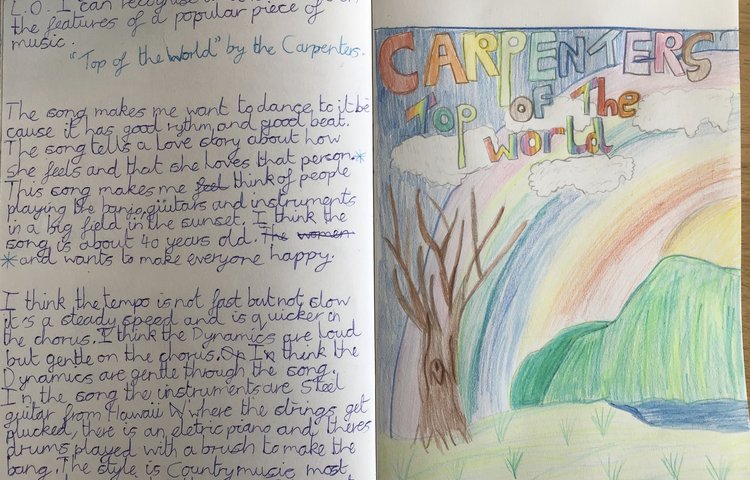 L.O. I can recognise
the features of a popular piece of
music.
"Top of the World" by the Carpenters.
The song makes me want to dance to it be
cause it has good rythm and good beat.
The song tells a love story about how
she feels and that she loves that person.*
This song makes me feel think of people
playing the banjo, giutars and instruments
in a big field in the sunset. I think the
song is about 40 years old. The women
*and wants to make everyone happy.
I think the tempo is not fast but not slow
it's a steady speed and is quicker in
the chorus. I think the Dynamics are loud
but gentle on the chorus. Or In think the
Dynamics are gentle through the song.
In the song the instruments are Steel
guitar from Hawaii where the strings get
plucked, there is an eletric piano and theres
drums played with a brush to make the
bang. The style is Country music most
CARPENTERS
Top OF The
World